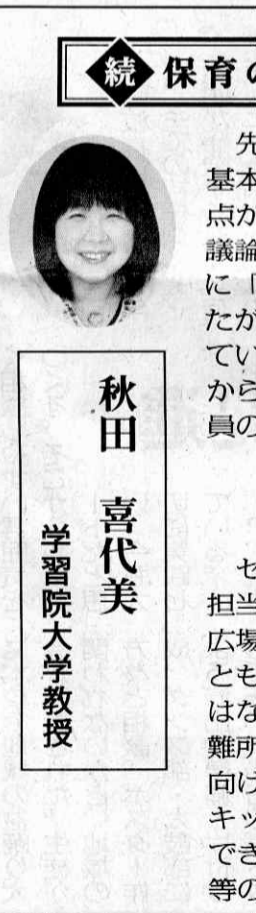 続 保育の
秋田 喜代美
学習院大学教授
先
基本
点か
議論
に「
たが
てい
から
員の
セ
担当
広場
とも
はな
難所
向け
キッ
でき
等の